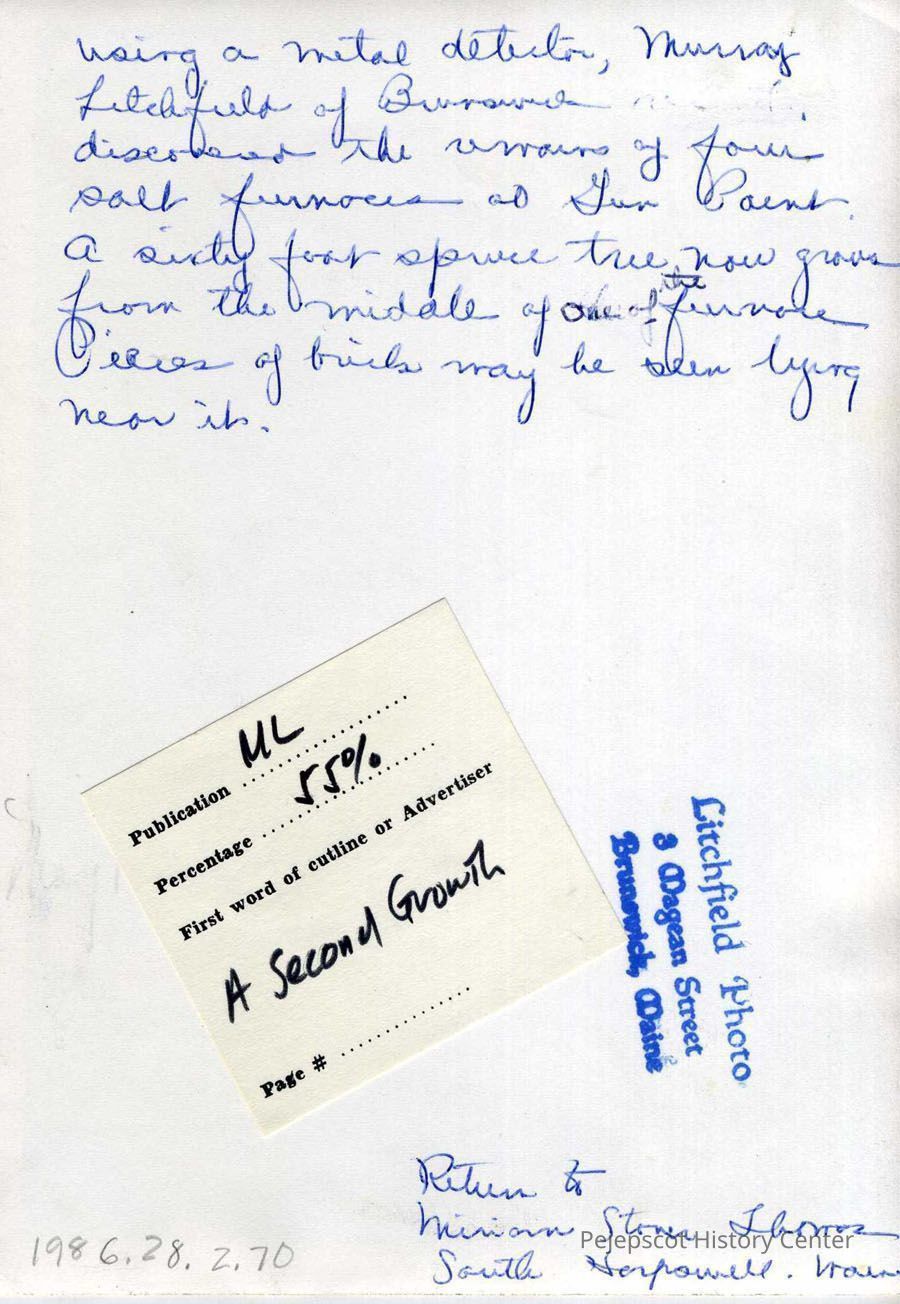 using a metal detector, Murray
Litchfield of Brunswick
discovered the remains of four
salt furnaces at Gun Point.
A sixty foot spruce tree now grows
from the middle of one of the furnace
Pieces of brick may be seen lying
near it.
Publication ML
Percentage 55%
First word of cutline or Advertiser
A Second Growth
Page #
Litchfield Photo
3 Magean Street
Brunswick, Maine
Return to
Miriam Stover Thomas
South Harpswell. Maine
Pejepscot History Center
1986.28.2.70